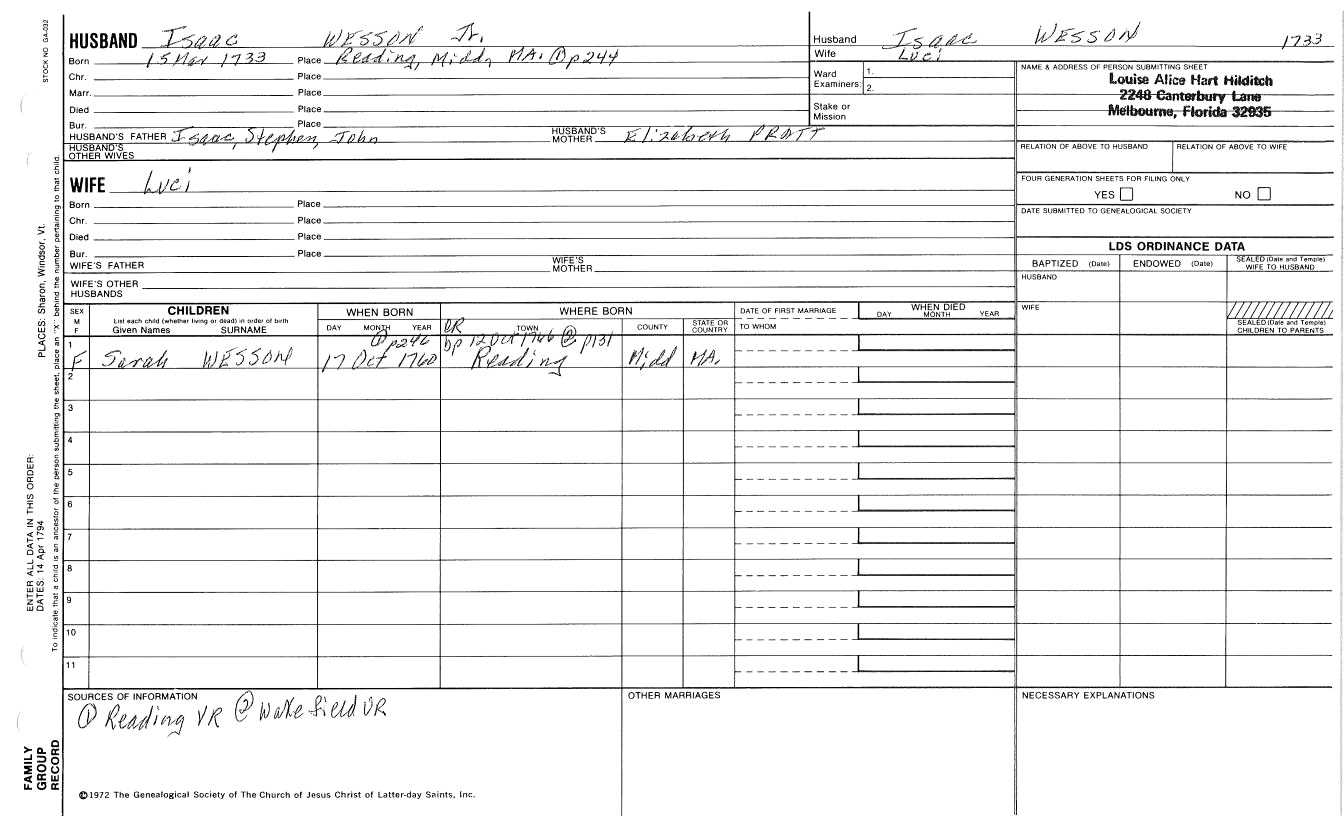 STOCK NO. GA-032
HUSBAND Isaac WESSON Jr.
Born 15 Mar 1733 Place Reading, Midd, MA. ① p244
Chr. Place
Marr. Place
Died Place
Bur. Place
HUSBAND'S FATHER Isaac, Stephen, John HUSBAND'S MOTHER Elizabeth PRATT
HUSBAND'S OTHER WIVES
WIFE Luci
Born Place
Chr. Place
Died Place
Bur. Place
WIFE'S FATHER WIFE'S MOTHER
WIFE'S OTHER HUSBANDS
Husband Isaac WESSON 1733
Wife Luci
Ward Examiners: 1. 2.
Stake or Mission
NAME & ADDRESS OF PERSON SUBMITTING SHEET
Louise Alice Hart Hilditch
2248 Canterbury Lane
Melbourne, Florida 32935
RELATION OF ABOVE TO HUSBAND RELATION OF ABOVE TO WIFE
FOUR GENERATION SHEETS FOR FILING ONLY
YES NO
DATE SUBMITTED TO GENEALOGICAL SOCIETY
LDS ORDINANCE DATA
BAPTIZED (Date) ENDOWED (Date) SEALED (Date and Temple) WIFE TO HUSBAND
HUSBAND
WIFE
SEALED (Date and Temple) CHILDREN TO PARENTS
SEX M F
CHILDREN
List each child (whether living or dead) in order of birth
Given Names SURNAME
WHEN BORN
DAY MONTH YEAR
WHERE BORN
TOWN COUNTY STATE OR COUNTRY
DATE OF FIRST MARRIAGE
TO WHOM
WHEN DIED
DAY MONTH YEAR
OR
① p246 bp 12 Oct 1766 ② p131
1 F Sarah WESSON 17 Oct 1760 Reading Midd MA.
2
3
4
5
6
7
8
9
10
11
SOURCES OF INFORMATION
① Reading VR ② Wakefield VR
OTHER MARRIAGES
NECESSARY EXPLANATIONS
©1972 The Genealogical Society of The Church of Jesus Christ of Latter-day Saints, Inc.
ENTER ALL DATA IN THIS ORDER:
DATES: 14 Apr 1794 PLACES: Sharon, Windsor, Vt.
To indicate that a child is an ancestor of the person submitting the sheet, place an "X" behind the number pertaining to that child.
FAMILY
GROUP
RECORD